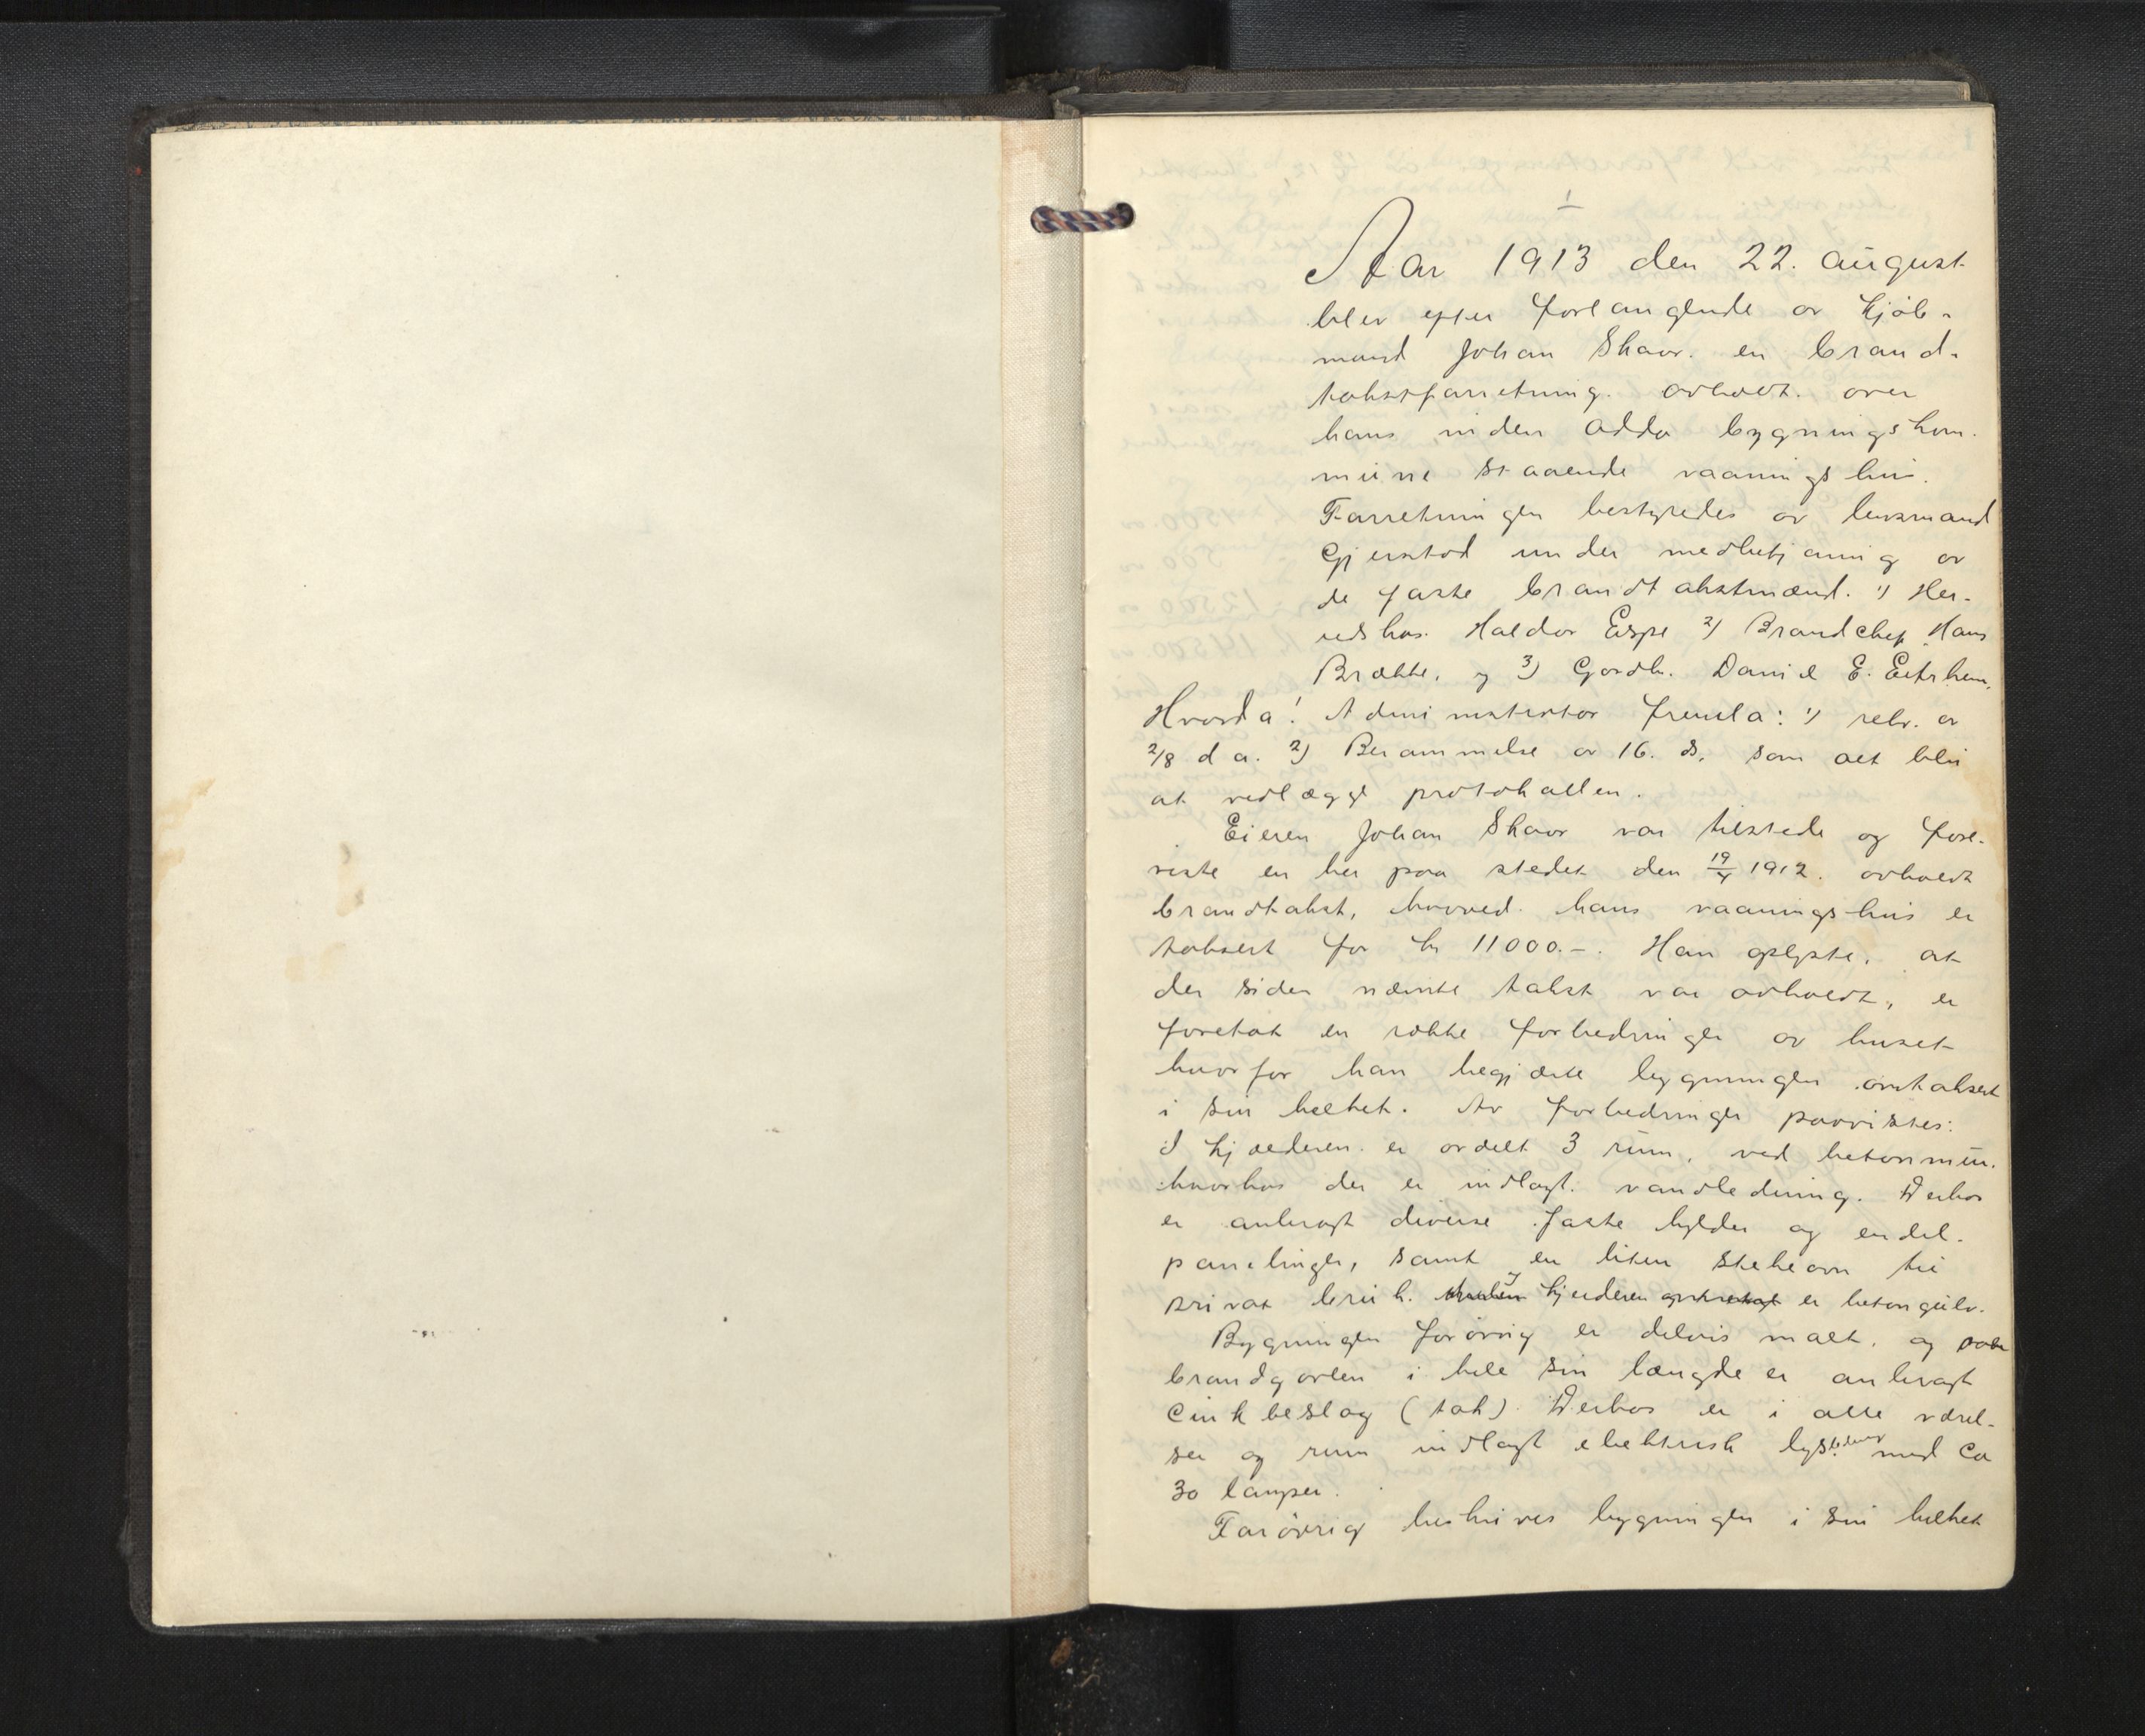 1
Aar 1913 den 22. august
blev efter forlangende av kjøb-
mand Johan Skaar. en brand-
takstforretning. avholdt. over
hans inden Odda bygningskom-
mune staaende vaaningshus.
Forretningen bestyredes av lensmand
Gjerstad under medbetjening av
de faste brandtakstmænd. 1) Her-
redskas. Haldor Espe 2) Brandchef Hans
Brække, og 3) Gardbr. Daniel E. Eitrheim,
Hvorda! Administrator fremla: 1) rekv. av
2/8 d a. 2) Berammelse av 16. ds, som alt blir
at vedlægge protokollen.
Eieren Johan Skaar var tilstede og fore-
viste en her paa stedet den 19/4 1912. avholdt
brandtakst, hvorved. hans vaaningshus er
taksert for kr 11000.-. Han oplyste, at
der siden nævnte takst var avholdt, er
foretat en række forbedringer av huset
hvorfor han begjærte bygningen omtaksert
i sin helhet. Av forbedringer paavistes:
I kjælderen er avdelt 3 rum, ved betonmur.
hvorhos der er indlagt. vandledning. Derhos
er anbragt diverse faste hylder og endel.
panelinger, samt en liten stekeovn til
privat bruk. I kjelderen er betongulv.
Bygningen forøvrig er delvis malt, og over
brandgavlen i hele sin længde er anbragt
Cinkbeslag (tak). Derhos er i alle værel-
ser og rum indlagt elektrisk lys med ca
30 lamper.
Forøvrig beskrives bygningen i sin helhet